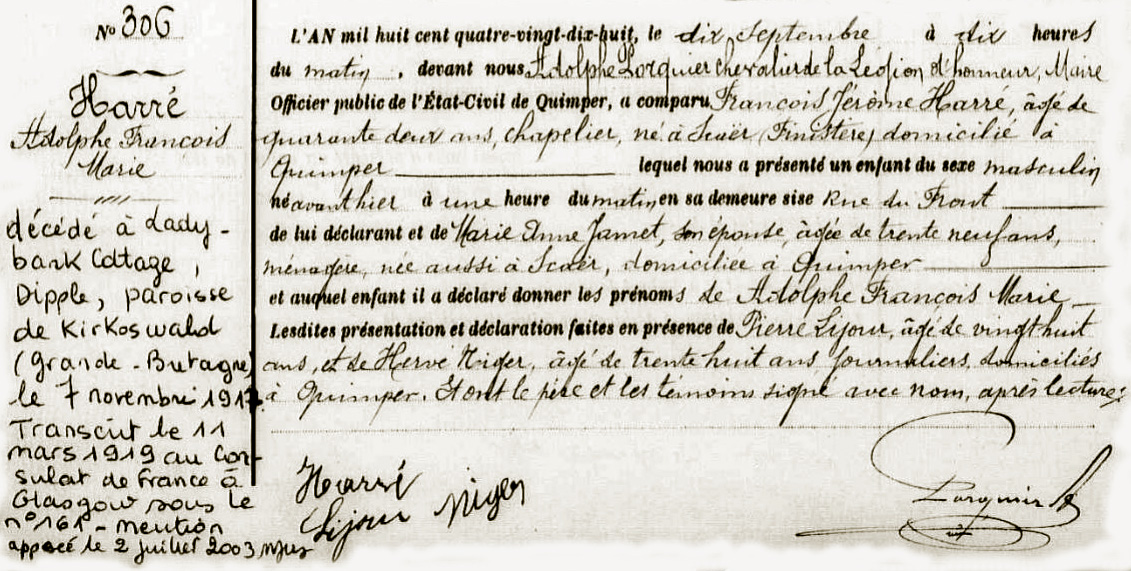 N° 306
Harré
Adolphe François
Marie
décédé à Lady-
bank Cottage,
Dipple, paroisse
de Kirkoswald
(Grande-Bretagne)
le 7 novembre
Transcrit le 11
mars 1919 au Con-
sulat de France à
Glasgow sous le
n° 161 - mention
apposée le 2 juillet 2003
L'AN mil huit cent quatre-vingt-dix-huit, le dix Septembre à dix heures
du matin, devant nous Adolphe Porquier chevalier de la Légion d'honneur, Maire
Officier public de l'État-Civil de Quimper, a comparu François Jérôme Harré, âgé de
quarante deux ans, chapelier, né à Scaër (Finistère) domicilié à
Quimper lequel nous a présenté un enfant du sexe masculin
né avant hier à une heure du matin en sa demeure sise Rue du Frout
de lui déclarant et de Marie Anne Jamet, son épouse, âgée de trente neuf ans,
ménagère, née aussi à Scaër, domiciliée à Quimper
et auquel enfant il a déclaré donner les prénoms de Adolphe François Marie
Lesdites présentation et déclaration faites en présence de Pierre Lijour, âgé de vingt huit
ans, et de Hervé Niger, âgé de trente huit ans, journaliers, domiciliés
à Quimper. Et ont le père et les témoins signé avec nous, après lecture.
Harré
Lijour Niger
Porquier